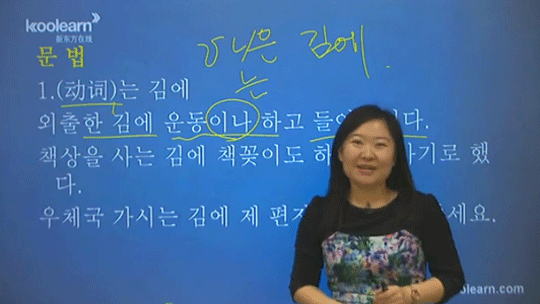 koolearn
新东方在线
V ㄴ/은 김에
는
문 법
1.(动词)는 김에
외출한 김에 운동이나 하고 들어 다.
책상을 사는 김에 책꽂이도 하 기로 했
다.
우체국 가시는 김에 제 세요.
olearn.com